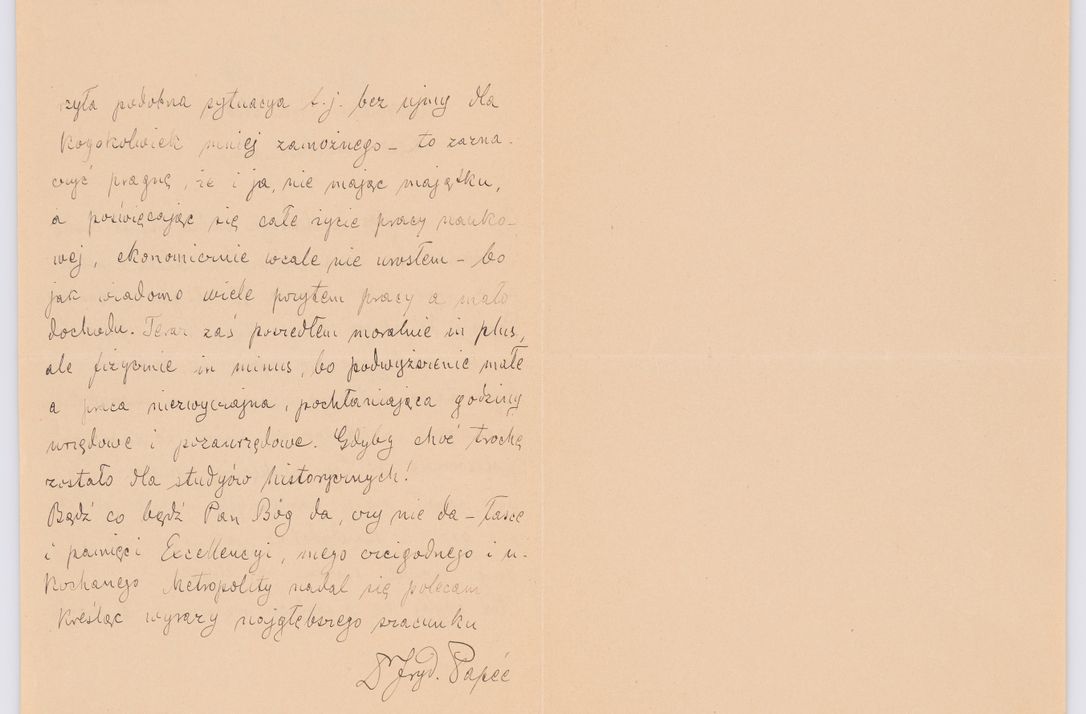 rzyła podobna sytuacya t.j. bez ujmy dla
kogokolwiek mniej zamożnego – to zazna-
czyć pragnę, że i ja, nie mając majątku,
a poświęcając się całe życie pracy nauko-
wej, ekonomicznie wcale nie urosłem – bo
jak wiadomo wiele przytem pracy a mało
dochodu. Teraz zaś poszedłem moralnie in plus,
ale fizycznie in minus, bo podwyższenie małe
a praca niezwyczajna, pochłaniająca godziny
urzędowe i pozaurzędowe. Gdyby choć trochę
zostało dla studyów historycznych!
Bądź co bądź Pan Bóg da, czy nie da – łasce
i pamięci Excellencyi, mego czcigodnego i u-
kochanego Metropolity nadal się polecam
kreśląc wyrazy najgłębszego szacunku
Dr Fryd. Papée